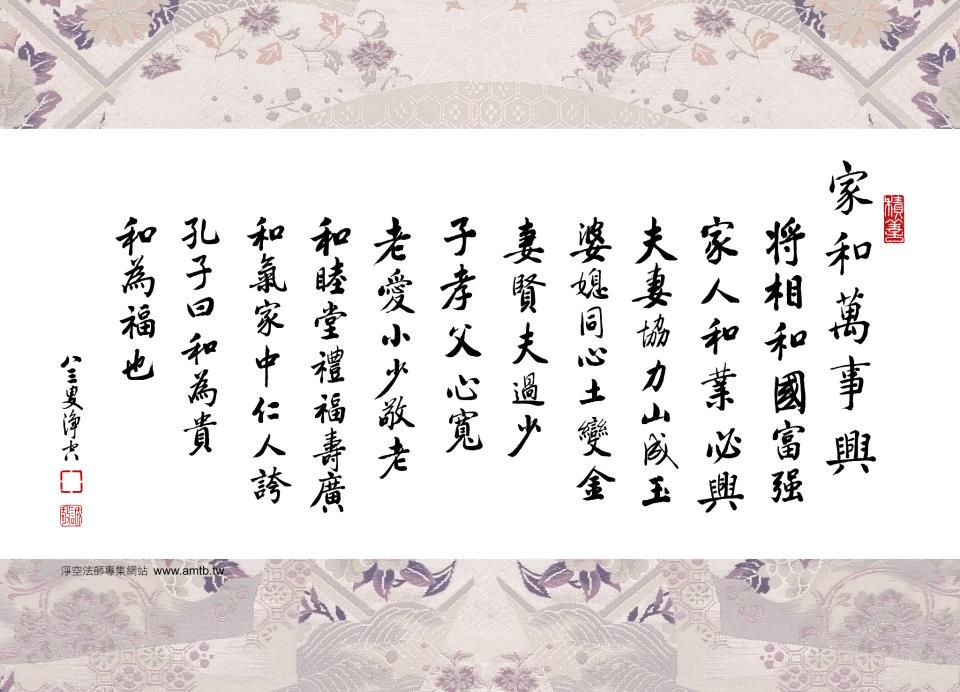 積善
家和萬事興
將相和國富强
家人和業必興
夫妻協力山成玉
婆媳同心土變金
妻賢夫過少
子孝父心寬
老愛小少敬老
和睦堂禮福壽廣
和氣家中仁人誇
孔子曰和為貴
和為福也
八三叟淨空
淨空法師專集網站 www.amtb.tw